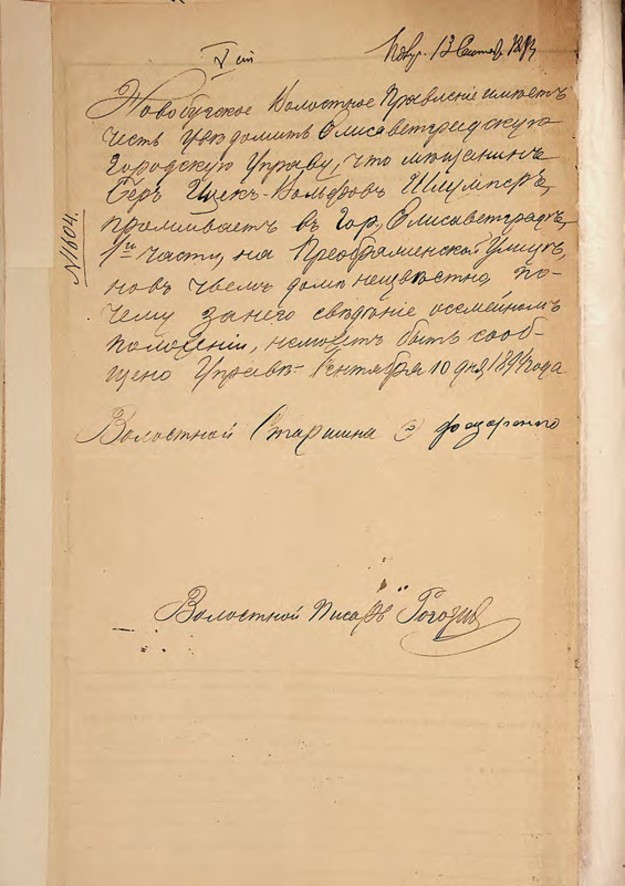 V сто
Получ. 13 Сентяб. 1894
Новобугское Волостное Правление имѣетъ
честь увѣдомить Елисаветградскую
Городскую Управу, что мѣщанинъ
Беръ Ицек-Вольфовъ Шлумперъ,
проживаетъ въ Гор. Елисаветградѣ,
1й части, на Преображенской Улицѣ,
новъ чьемъ домѣ неизвѣстно, по-
чему занего свѣдѣніе осемейномъ
положеніи, неможетъ быть сооб-
щено Управѣ Сентября 10 дня, 1894 года
№1604.
Волостной Старшина
Волостной Писарь Рогозинъ